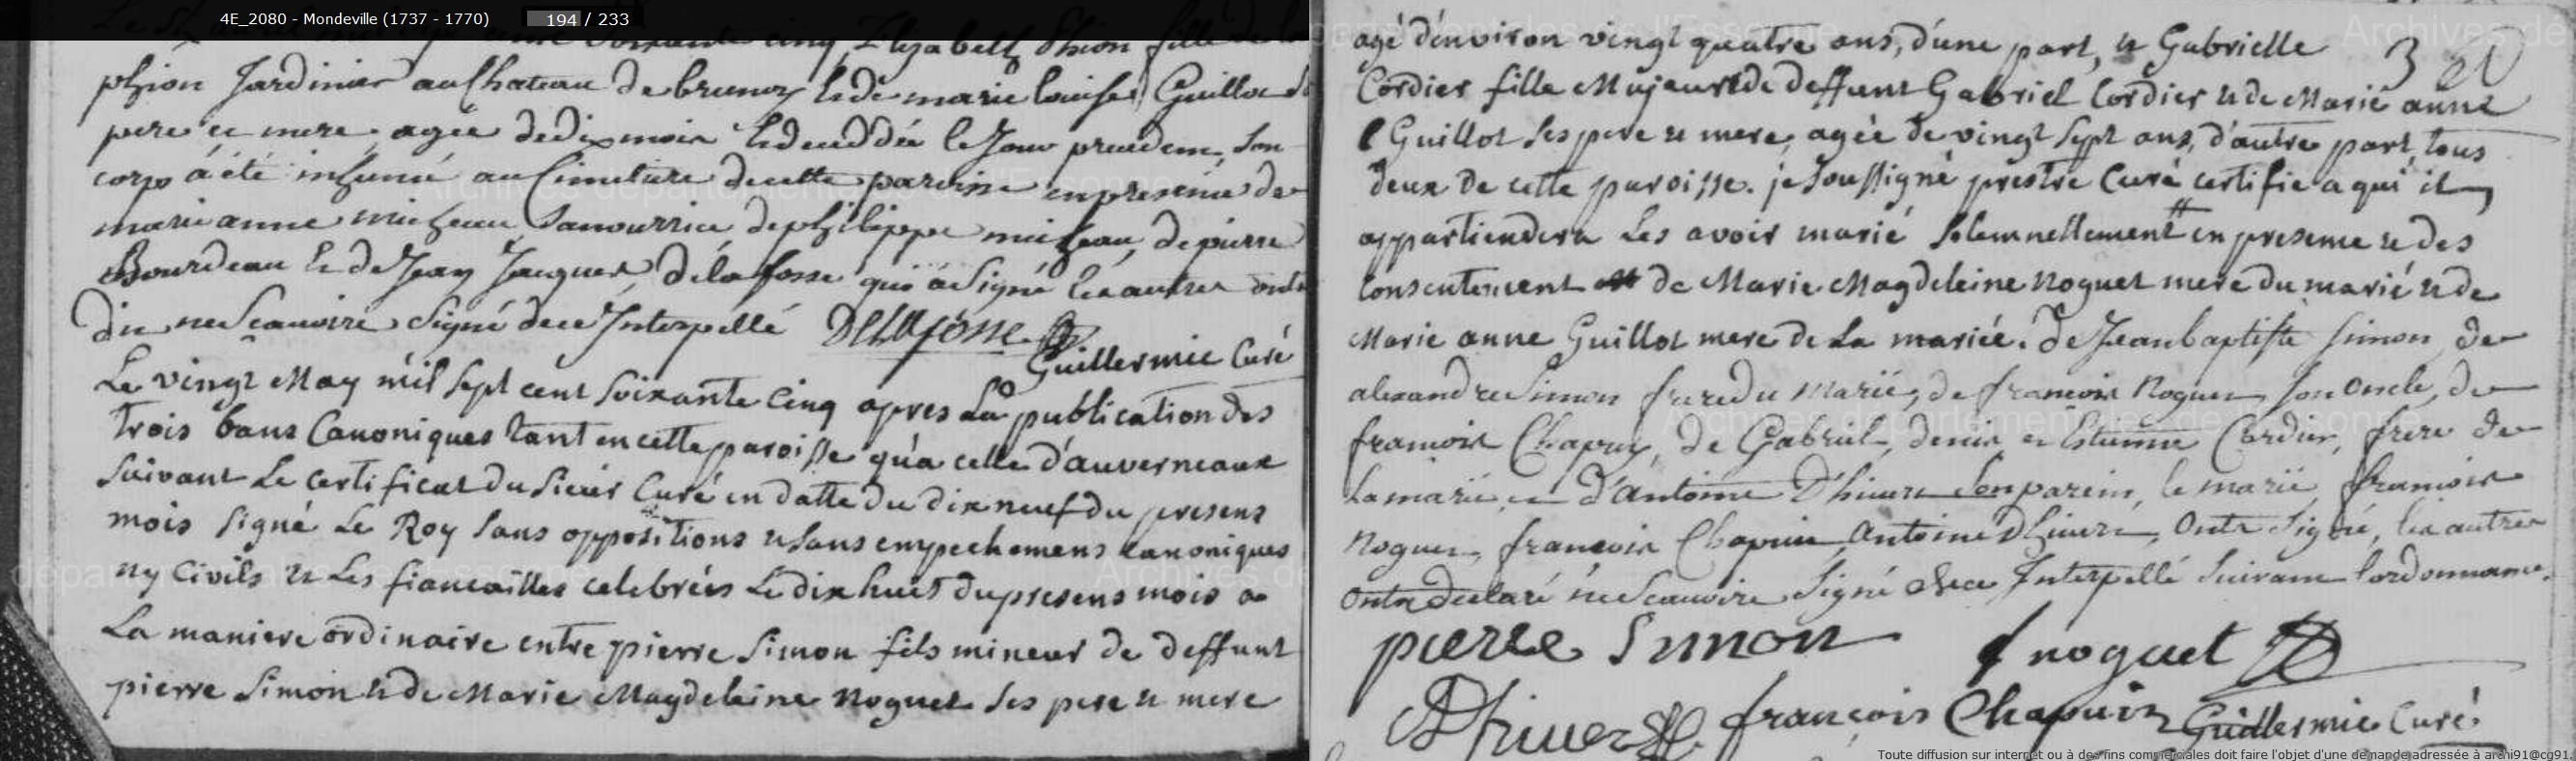 4E_2080 - Mondeville (1737 - 1770) 194 / 233
cinq Elizabeth phion fille de
phion Jardinier au Chateau de brunoy et de marie louise Guillot
pere et mere, agée de dix mois decedée le Jour precedent, son
corps a été inhumé au Cimetiere de cette paroisse en presence de
marie anne micheau sa nourrice de philippe micheau, de pierre
Bourdeau et de Jean Jacques de la fosse qui a signé les autres ont
dit ne scauoire signé de ce Interpellé Delafosse
Guillermic Curé
Le vingt May mil sept cent soixante cinq apres La publication des
trois bans Canoniques tant en cette paroisse qu'a celle d'auverneaux
suivant Le certificat du sieur Curé en datte du dix neuf du present
mois signé Le Roy sans oppositions et sans empechemens canoniques
ny Civils et Les fiancailles celebrées Le dix huit du present mois a
La maniere ordinaire entre pierre Simon fils mineur de deffunt
pierre Simon et de Marie Magdeleine Noguet ses pere et mere
agé d'environ vingt quatre ans, d'une part, et Gabrielle
Cordier fille Majeure de deffunt Gabriel Cordier et de Marie anne
Guillot ses pere et mere, agée de vingt sept ans, d'autre part, tous
deux de cette paroisse. je soussigné prestre Curé certifie a qui il
appartiendera Les avoir marié solemnellement en presence et des
consentement de Marie Magdeleine Noguet mere du marié et de
Marie anne Guillot mere de La mariée. de Jean baptiste simon, de
alexandre simon frere du marié, de francois Noguet son oncle, de
francois Chapuy, de Gabriel, denis et Estienne Cordier, frere de
La mariée et d'antoine D'hiuert son parein, le marié, francois
Noguet, francois Chapuis, antoine Dhiuert, ont signé, les autres
ont declaré ne scauoire signé de ce Interpellé suivant l'ordonnance.
pierre Simon f noguet
françois Chapuis Guillermic Curé.
Toute diffusion sur internet ou à des fins commerciales doit faire l'objet d'une demande adressée à archi91@cg91.